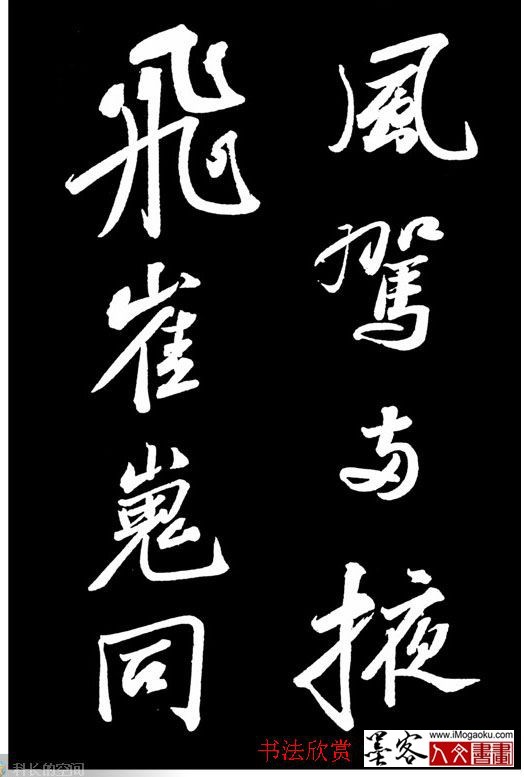 風駕兩掖
飛崔嵬同
书法欣赏
墨客
www.iMogaoku.com
人文書畫
科长的空间